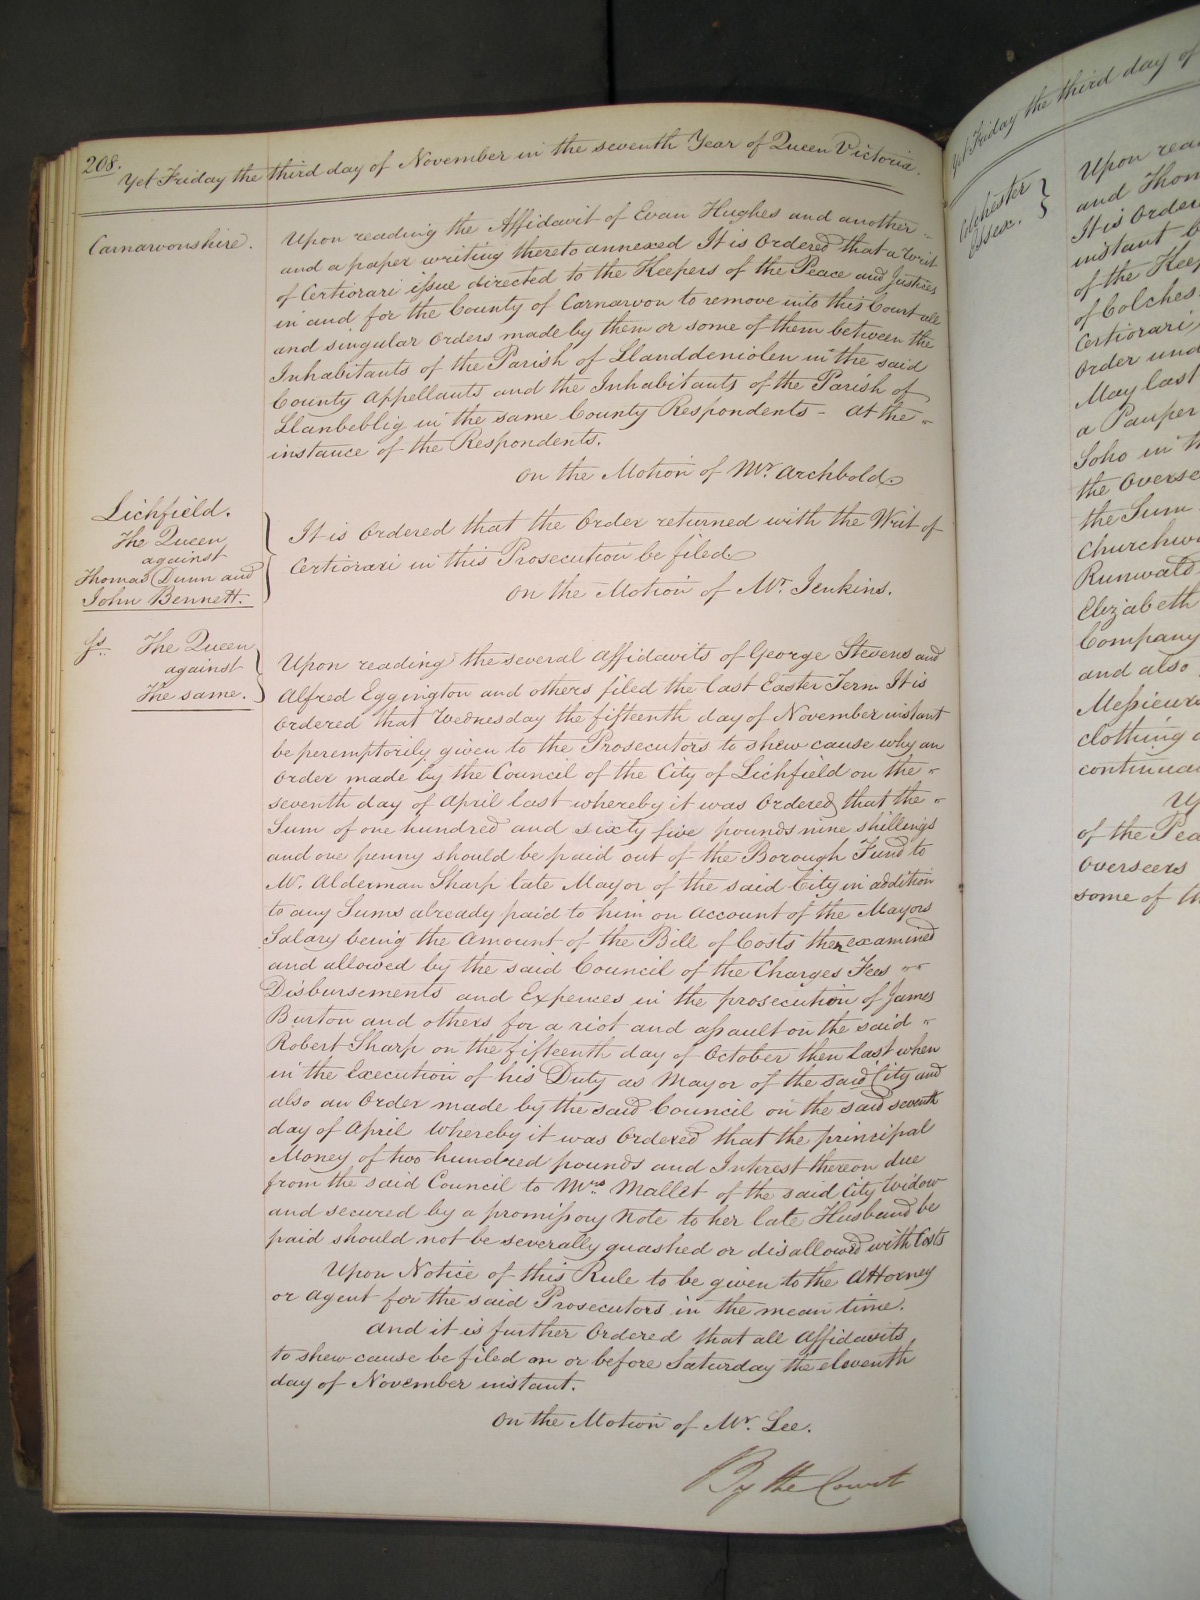 208.
Yet Friday the third day of November in the seventh Year of Queen Victoria.
Carnarvonshire.
Upon reading the Affidavit of Evan Hughes and another
and a paper writing thereto annexed It is Ordered that a Writ
of Certiorari issue directed to the Keepers of the Peace and Justices
in and for the County of Carnarvon to remove into this Court all
and singular Orders made by them or some of them between the
Inhabitants of the Parish of Llanddeniolen in the said
County Appellants and the Inhabitants of the Parish of
Llanbeblig in the same County Respondents - At the
instance of the Respondents.
On the Motion of Mr. Archbold.
Lichfield.
The Queen
against
Thomas Dunn and
John Bennett.
It is Ordered that the Order returned with the Writ of
Certiorari in this Prosecution be filed.
On the Motion of Mr. Jenkins.
Ss. The Queen
against
The same.
Upon reading the several Affidavits of George Stevens and
Alfred Eggington and others filed the last Easter Term It is
Ordered that Wednesday the fifteenth day of November instant
be peremptorily given to the Prosecutors to shew cause why an
Order made by the Council of the City of Lichfield on the
seventh day of April last whereby it was Ordered that the
Sum of one hundred and sixty five pounds nine shillings
and one penny should be paid out of the Borough Fund to
Mr. Alderman Sharp late Mayor of the said City in addition
to any Sums already paid to him on Account of the Mayors
Salary being the Amount of the Bill of Costs then examined
and allowed by the said Council of the Charges Fees
Disbursements and Expences in the prosecution of James
Burton and others for a riot and assault on the said
Robert Sharp on the fifteenth day of October then last when
in the Execution of his Duty as Mayor of the said City and
also an Order made by the said Council on the said seventh
day of April whereby it was Ordered that the principal
Money of two hundred pounds and Interest thereon due
from the said Council to Mrs. Mallet of the said City Widow
and secured by a promissory Note to her late Husband be
paid should not be severally quashed or disallowed with Costs
Upon Notice of this Rule to be given to the Attorney
or Agent for the said Prosecutors in the mean time.
And it is further Ordered that all Affidavits
to shew cause be filed on or before Saturday the eleventh
day of November instant.
On the Motion of Mr. Lee.
By the Court
Yet Friday the third day of
Colchester
Essex.
Upon
and
It is Order
instant
of the Keep
of Colches
Certiorari
Order und
May last
a Pauper
Soho in
the Overse
the Sum
Churchwa
Runwald
Elizabeth
Company
and also
Messieurs
clothing
continua
of the Pea
Overseers
some of th